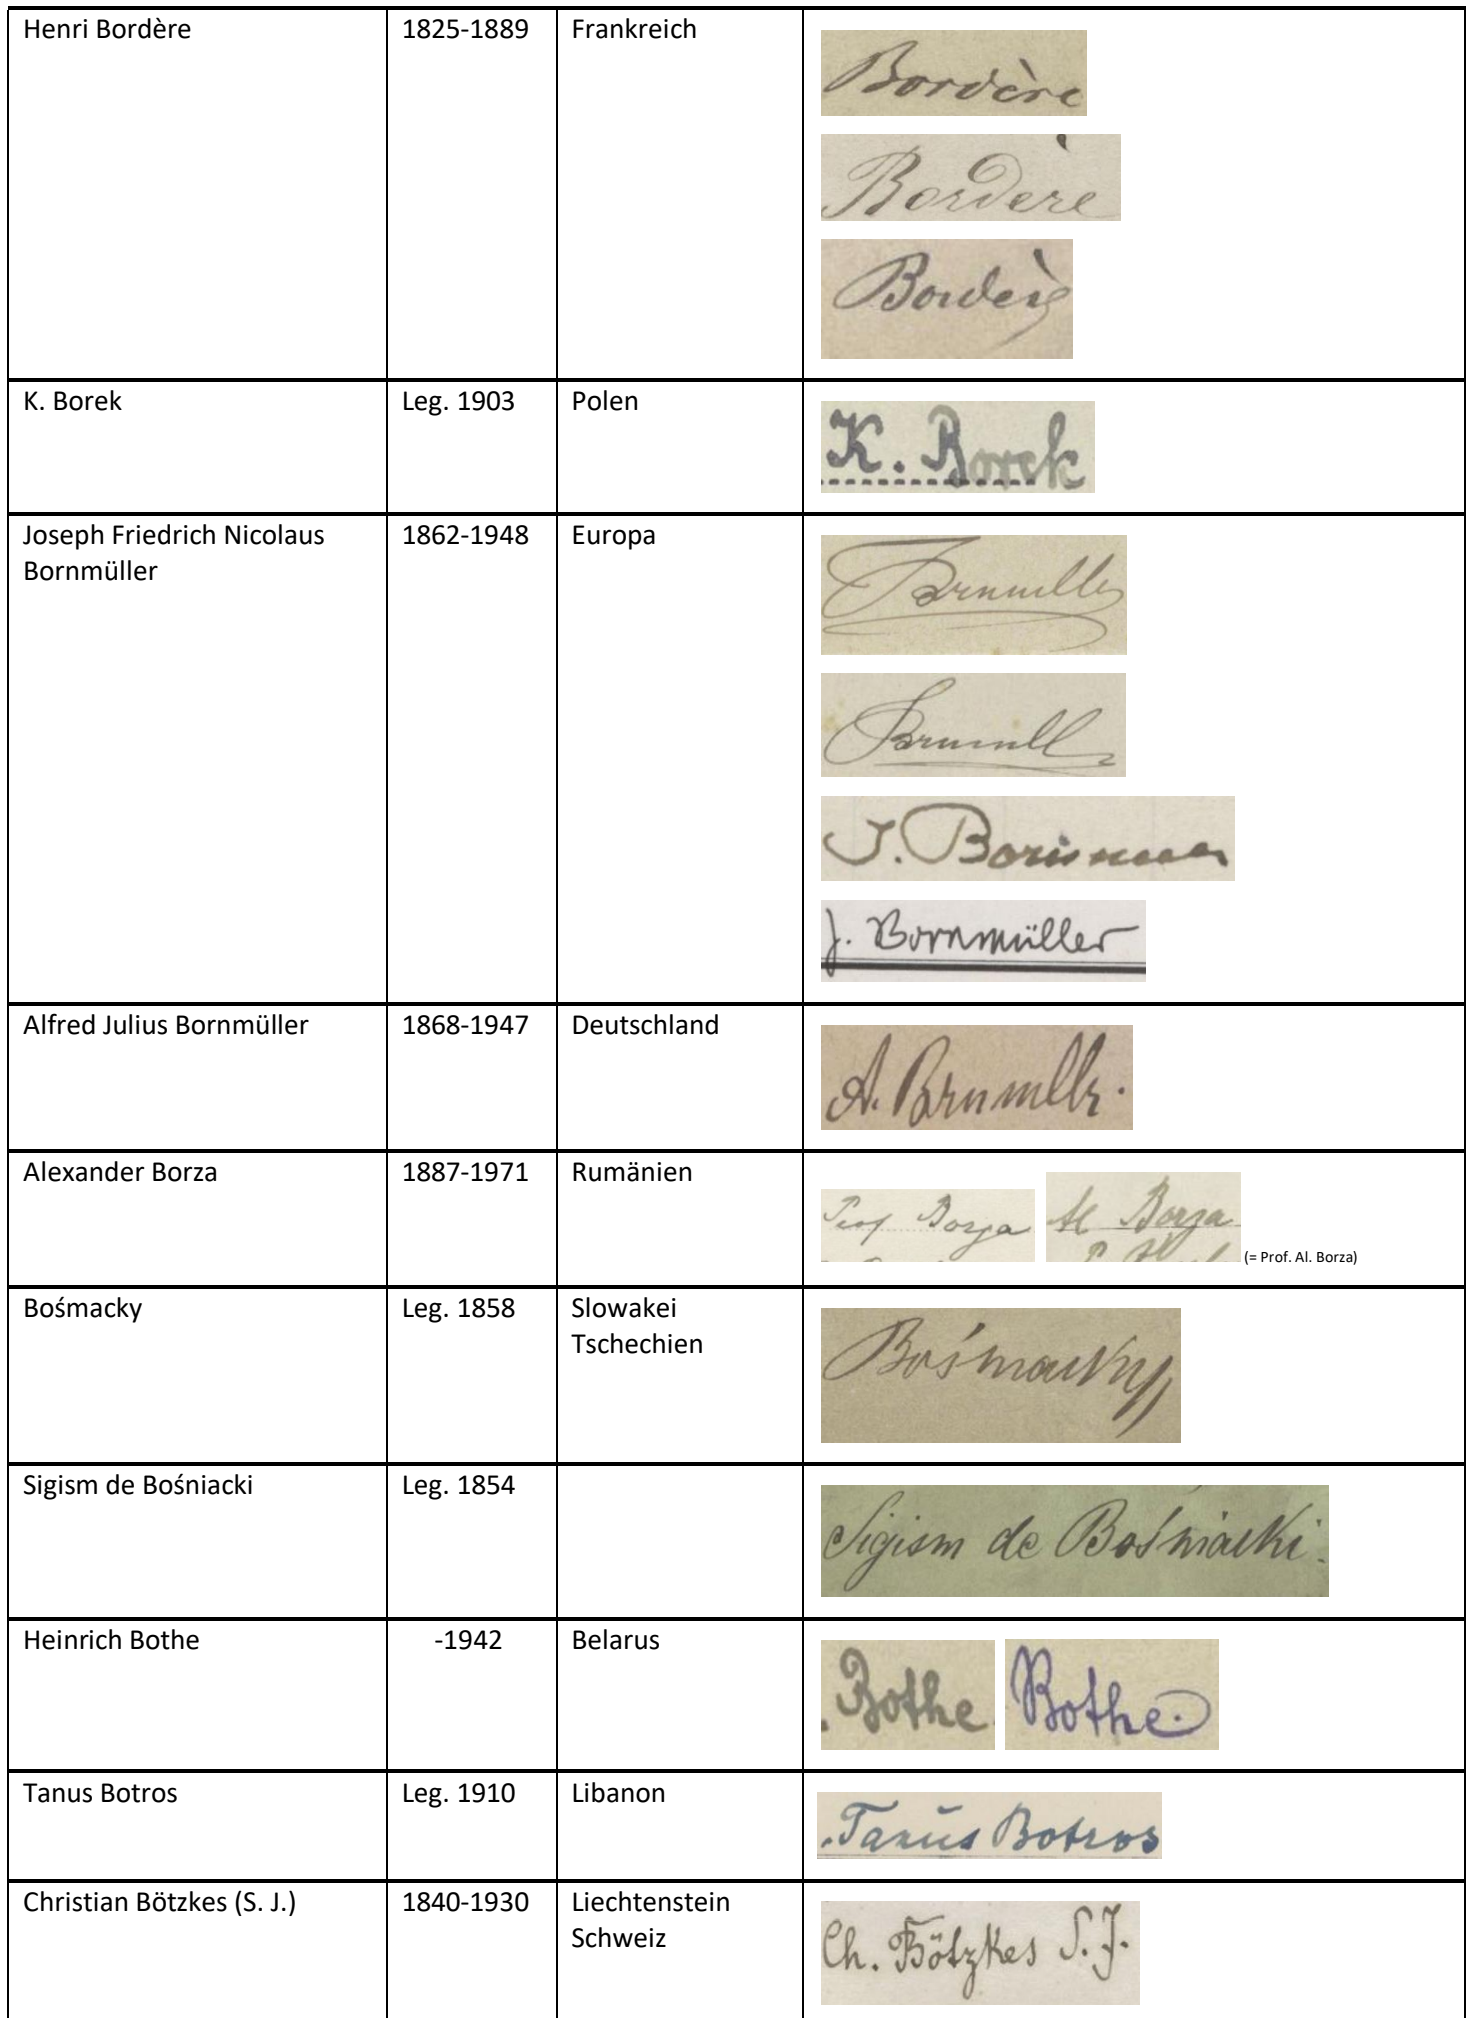 Henri Bordère 1825-1889 Frankreich
Bordère
Bordère
Bordère
K. Borek Leg. 1903 Polen
K. Borek
Joseph Friedrich Nicolaus 1862-1948 Europa
Bornmüller
J.
J. Bornmüller
Alfred Julius Bornmüller 1868-1947 Deutschland
A.
Alexander Borza 1887-1971 Rumänien
Prof Borza Al Borza
(= Prof. Al. Borza)
Bośmacky Leg. 1858 Slowakei
Tschechien
Bośmacky
Sigism de Bośniacki Leg. 1854
Sigism de Bośniacki.
Heinrich Bothe -1942 Belarus
Bothe Bothe.
Tanus Botros Leg. 1910 Libanon
Tanus Botros
Christian Bötzkes (S. J.) 1840-1930 Liechtenstein
Schweiz
Ch. Bötzkes S. J.